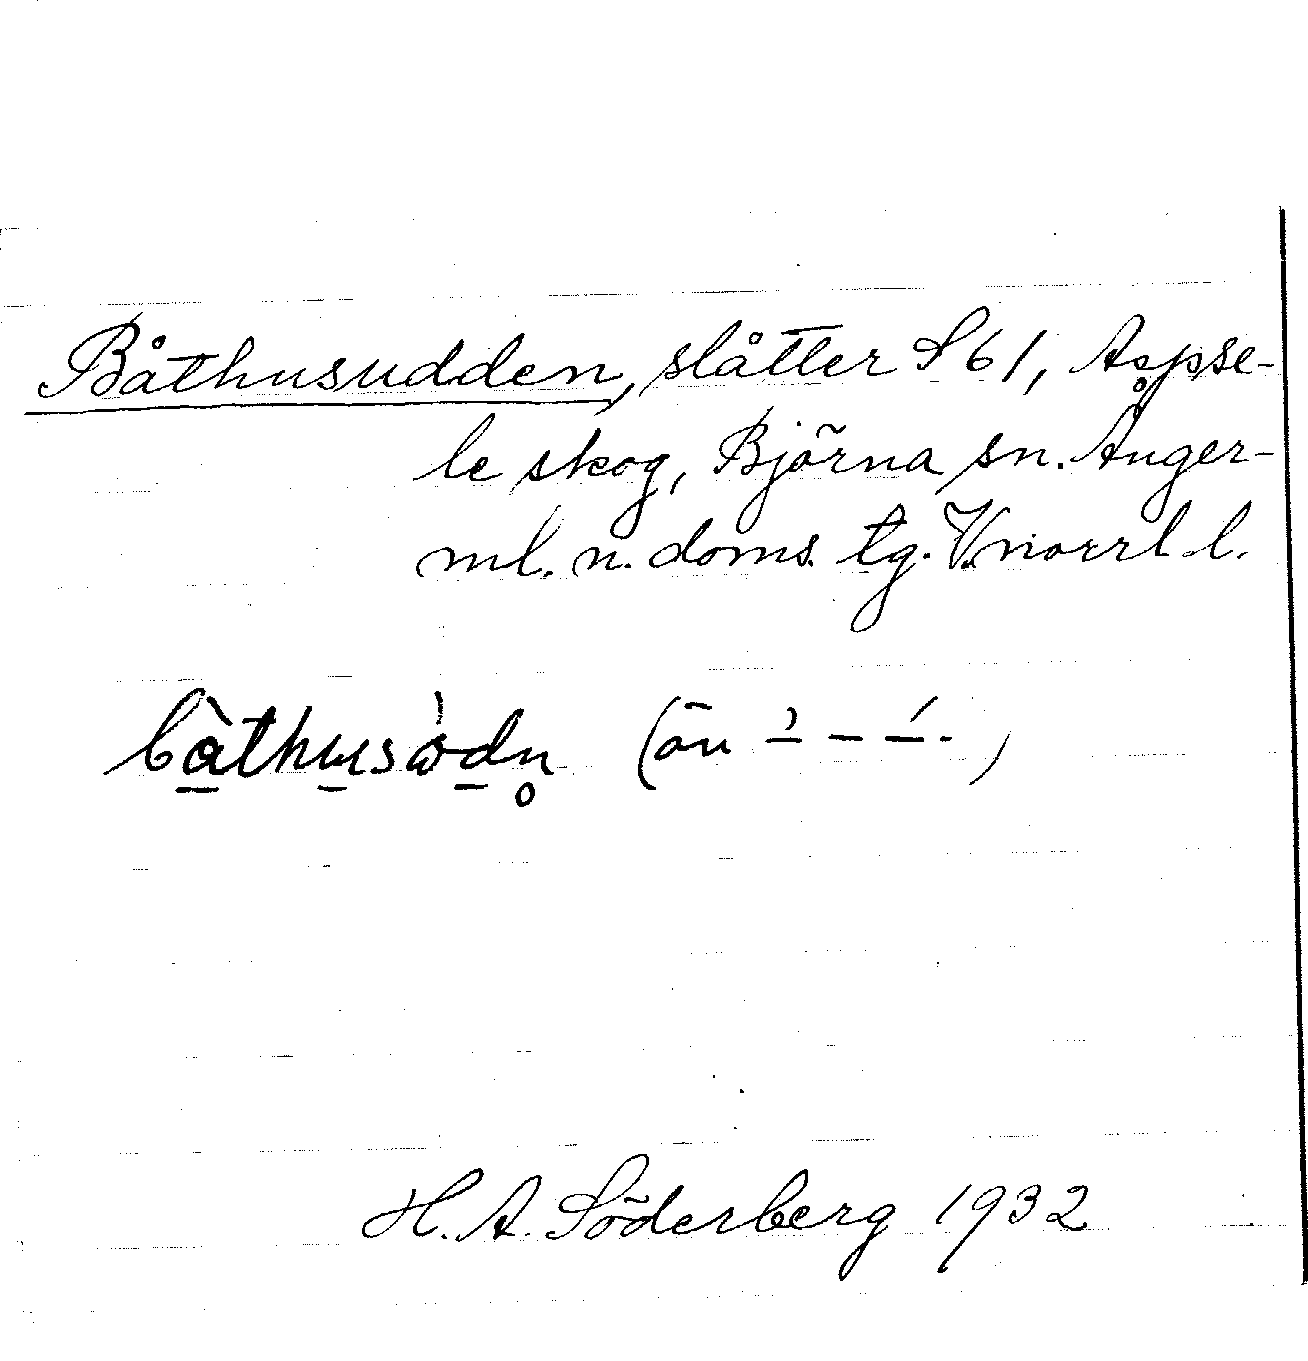 Båthusudden, slåtter S 61, Aspse-
le skog, Björna sn. Ånger-
ml. n. doms. tg. V.norrl. l.
bàthusòdn̥ (än
H. A. Söderberg 1932